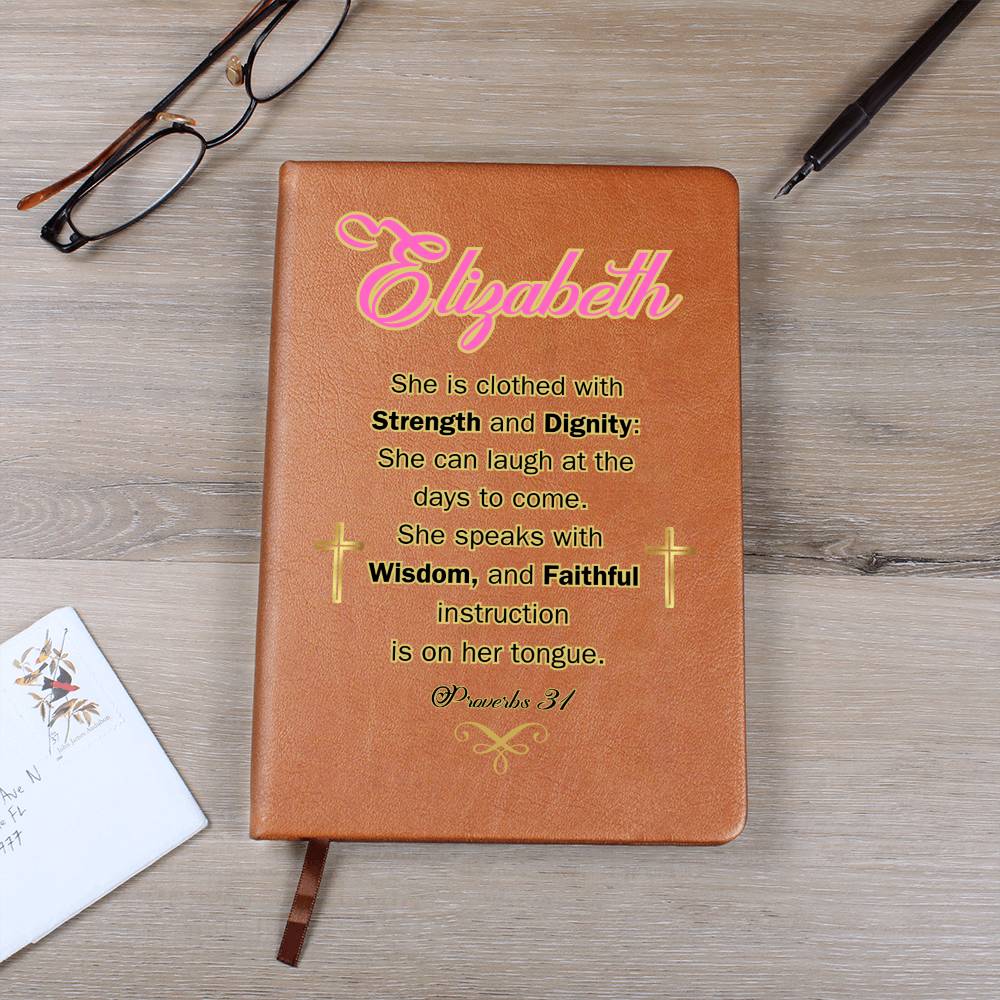 Elizabeth
She is clothed with
Strength and Dignity:
She can laugh at the
days to come.
She speaks with
Wisdom, and Faithful
instruction
is on her tongue.
Proverbs 31
John James Audubon
37
Ave N
FL
977